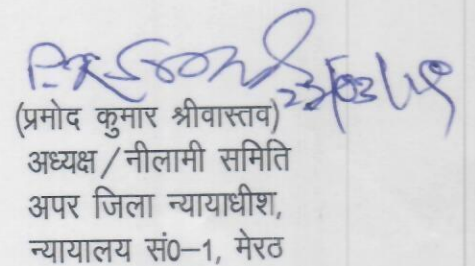 (प्रमोद कुमार श्रीवास्तव)
अध्यक्ष/नीलामी समिति
अपर जिला न्यायाधीश,
न्यायालय सं0–1, मेरठ